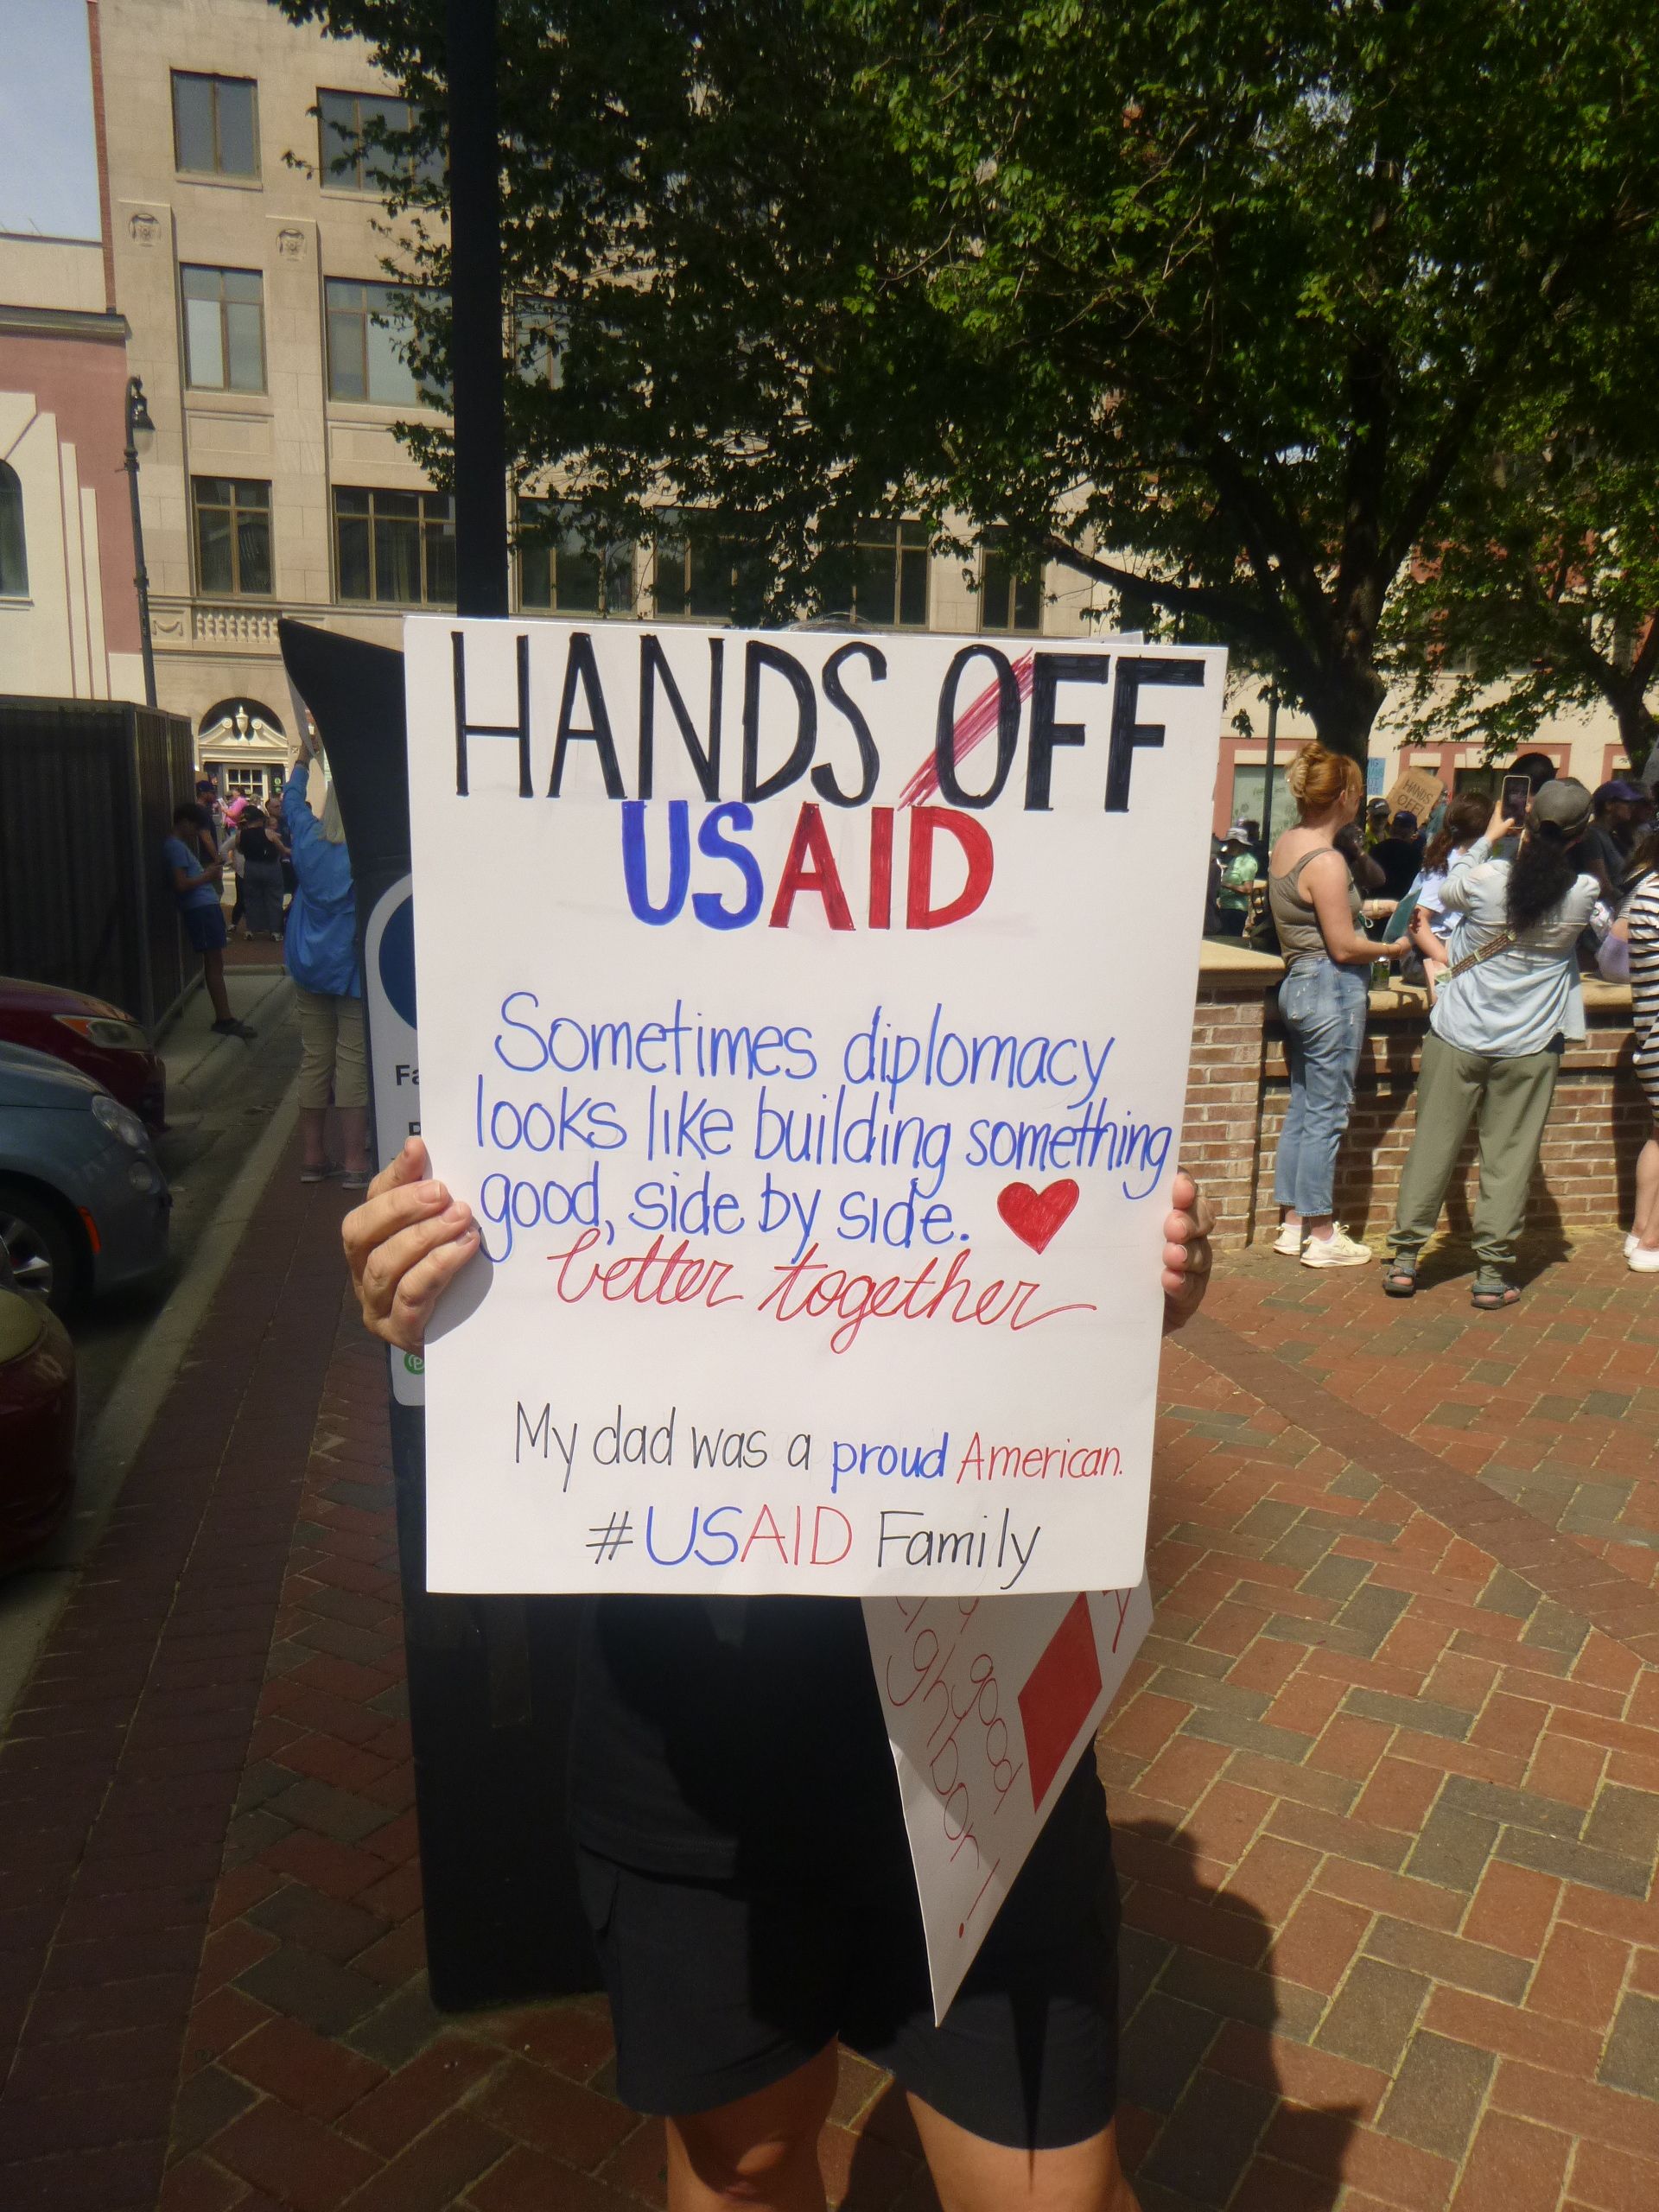 HANDS OFF
USAID
Sometimes diplomacy
looks like building something
good, side by side.
better together
My dad was a proud American.
#USAID Family
good
HANDS
OFF!